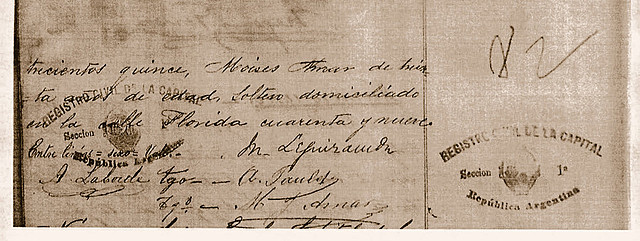 trecientos quince, Moises Amar de trein-
ta años de edad, soltero domiciliado
en la calle Florida cuarenta y nueve
Entre lineas =
A. Laborde Tgo =
Tgo = M. T. Amar
REGISTRO CIVIL DE LA CAPITAL
Seccion
República Argentina
82
REGISTRO CIVIL DE LA CAPITAL
Seccion 1a
República Argentina